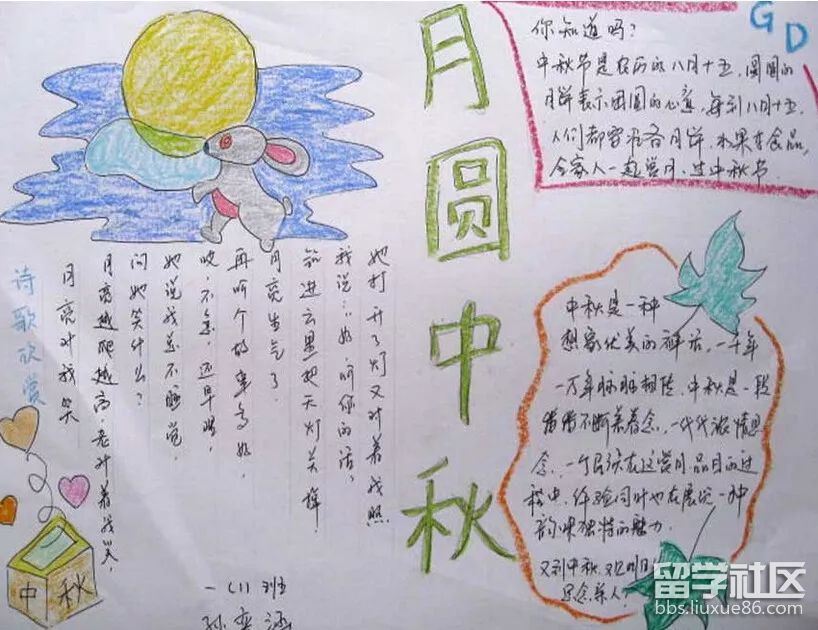 月圆中秋
GD
你知道吗?
中秋节是农历的八月十五,圆圆的
月饼表示团圆的心意,每到八月十五,
人们都月饼.水果食品,
全家人一起赏月、过中秋节.
诗歌欣赏
月亮对我笑
月亮越爬越高,老对着我笑,
问她笑什么?
她说我总不睡觉,
不急 还早些,
再听个故事多好,
月亮生气了.
钻进云里把天灯关掉
我说:"好,听你的话,
她打开了灯又对着我照
中秋
一(1)班
孙奕涵
中秋是一种
优美的神话,一千年
一万年脉脉相传,中秋是一段
不断念,一代代浓情思
念,一个民族在这赏月品月的过
程中,体验同时也在展览一种
韵味独特的魅力.
又到中秋,又见明月
思念亲人
留学社区
bbs.liuxue86.com